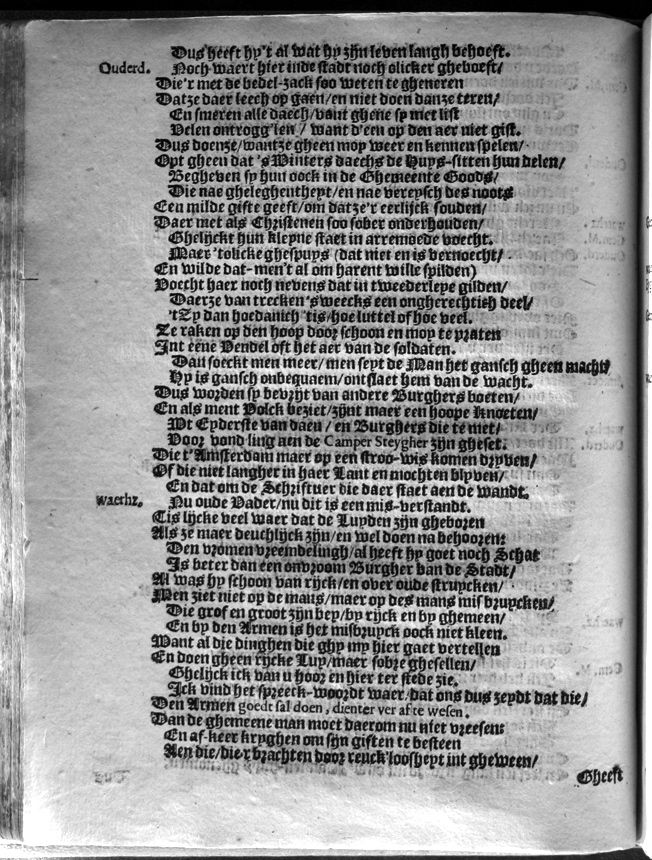 Dus heeft hy't al wat hy zijn leven langh behoeft.
Ouderd. Noch waert hier inde stadt noch olicker ghevoest/
Die'r met de bedel-zack soo weten te gheneren
Datze daer leech op gaen/en niet doen danze teren/
En smeren alle daech/vant ghene sy met list
Velen ontrogg'len/ want d'een op den aer niet gist.
Dus doenze/wantze gheen moy weer en kennen spelen/
Opt gheen dat 's Winters daechs de Huys-sitten hun delen/
Begheven sy hun oock in de Ghemeente Goods/
Die nae gheleghentheyt/en nae vereysch des noots
Een milde gifte geeft/om datze'r eerlijck souden/
Daer met als Christenen soo sober onderhouden/
Ghelijckt hun kleyne staet in arremoede voecht.
Maer 'tolicke ghespuys (dat niet en is vernoecht/
En wilde dat-men't al om harent wille spilden)
Voecht haer noch nevens dat in tweederleye gilden/
Daerze van trecken 'sweecks een ongherechtish deel/
'tZy dan hoedanich 'tis/hoe luttel of hoe veel.
Te raken op den hoop door schoon en moy te praten
Int eene Vendel oft het aer van de soldaten.
Dan soeckt men meer/men seyt de Man het gansch gheen macht/
Hy is gansch onbequaem/ontslaet hem van de wacht.
Dus worden sy bevrijt van andere Burghers boeten/
En als ment Volck beziet/zijnt maer een hoope knoeten/
Wt Eyderste van daen/ en Burghers die te met/
Door vond-ling aen de Camper Steygher zijn gheset.
Die t'Amsterdam maer op een stroo-wis komen dryven/
Of die niet langher in haer Lant en mochten blyven/
En dat om de Schriftuer die daer staet aen de wandt.
waerhz. Nu oude Vader/nu dit is een mis-verstandt.
Tis lijcke veel waer dat de Luyden zijn gheboren
Als ze maer deuchlijck zijn/en wel doen na behooren:
Den vromen vreemdelingh/al heeft hy goet noch Schat
Is beter dan een onvroom Burgher van de Stadt/
Al was hy schoon van rijck/en over oude struycken/
Men ziet niet op de mans/maer op des mans misbruycken/
Die grof en groot zijn bey/by rijck en by ghemeen/
En by den Armen is het misbruyck oock niet kleen.
Want al die dinghen die ghy my hier gaet vertellen
En doen gheen rijcke Luy/maer sobre ghesellen/
Ghelijck ick van u hoor en hier ter stede zie.
Ick vind het spreeck-woordt waer/dat ons dus zeydt dat die/
Den Armen goedt sal doen, dienter ver af te wesen.
Dan de ghemeene man moet daerom nu niet vreesen:
En af-keer kryghen om sijn giften te besteen
Aen die/die'r brachten door reuck'loosheyt int gheween/
Gheeft